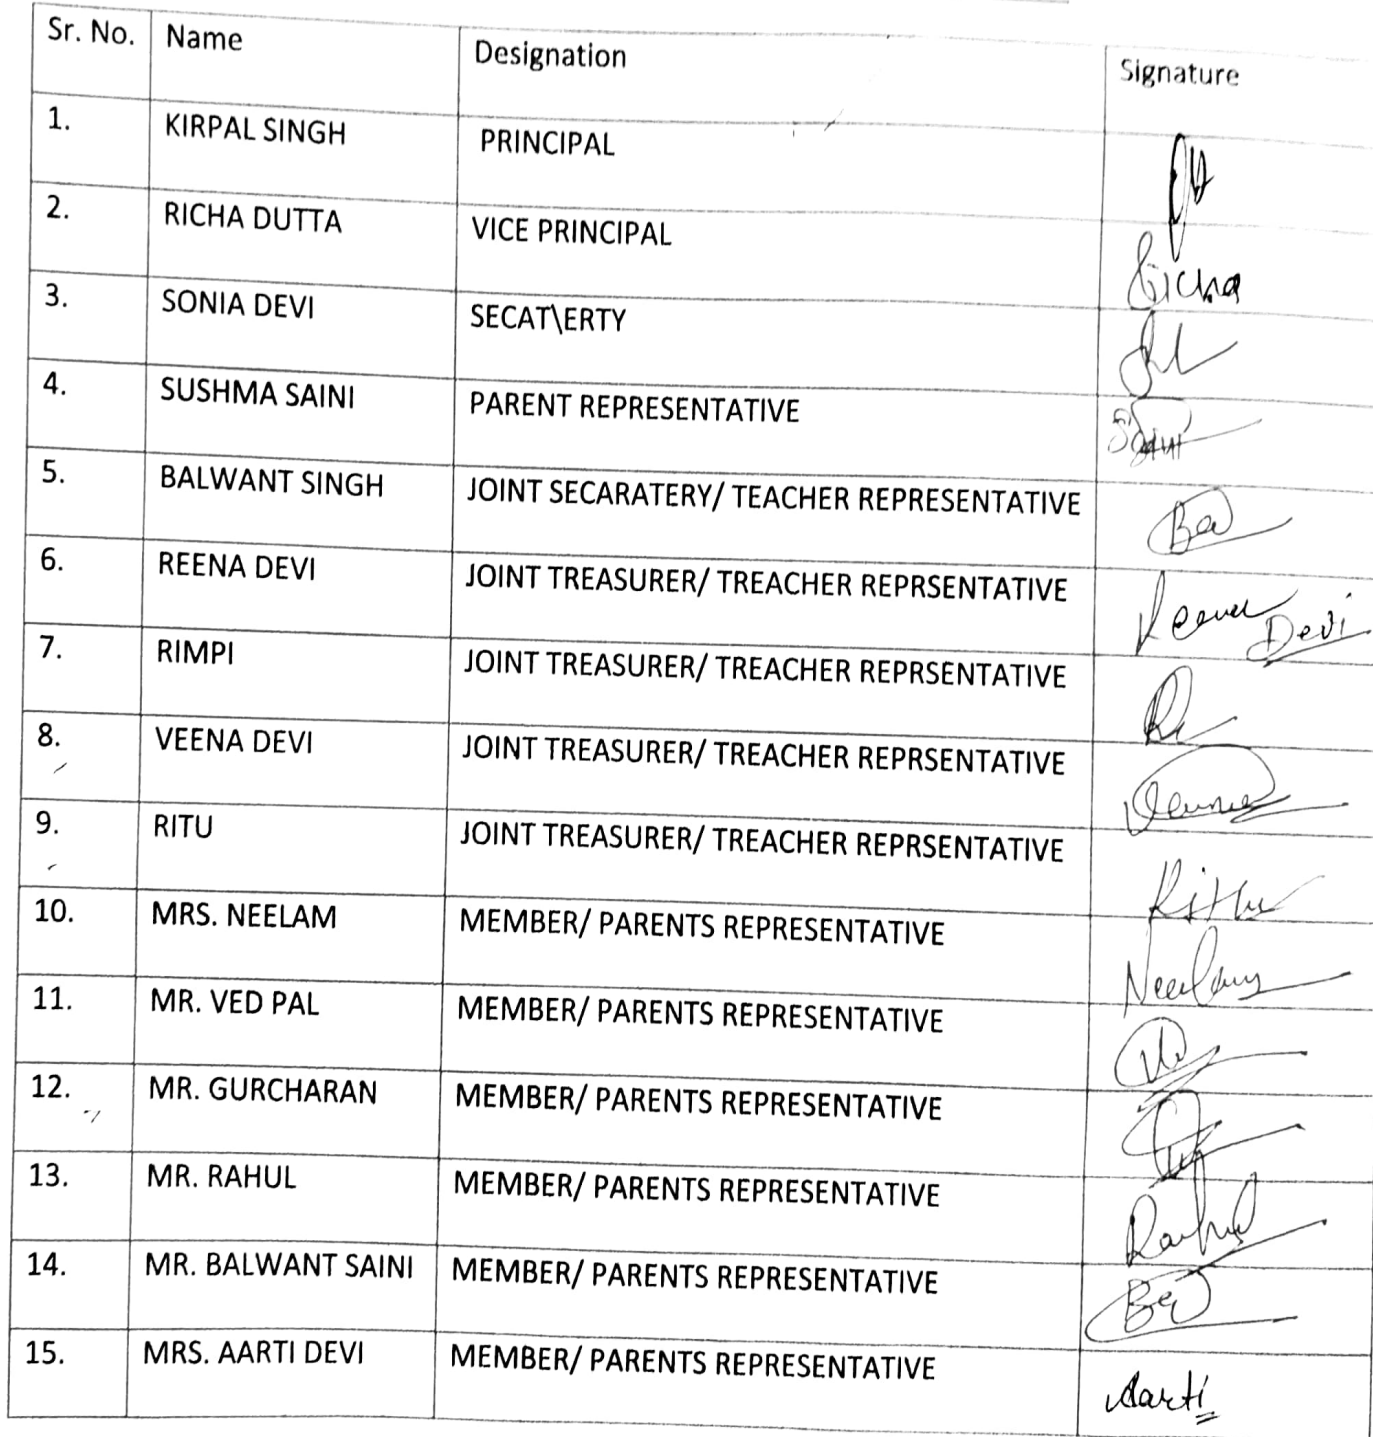 Sr. No. Name Designation Signature
1. KIRPAL SINGH PRINCIPAL
2. RICHA DUTTA VICE PRINCIPAL Richa
3. SONIA DEVI SECAT\ERTY
4. SUSHMA SAINI PARENT REPRESENTATIVE
5. BALWANT SINGH JOINT SECARATERY/ TEACHER REPRESENTATIVE
6. REENA DEVI JOINT TREASURER/ TREACHER REPRSENTATIVE Reena Devi
7. RIMPI JOINT TREASURER/ TREACHER REPRSENTATIVE
8. VEENA DEVI JOINT TREASURER/ TREACHER REPRSENTATIVE
9. RITU JOINT TREASURER/ TREACHER REPRSENTATIVE
10. MRS. NEELAM MEMBER/ PARENTS REPRESENTATIVE Neelam
11. MR. VED PAL MEMBER/ PARENTS REPRESENTATIVE
12. MR. GURCHARAN MEMBER/ PARENTS REPRESENTATIVE
13. MR. RAHUL MEMBER/ PARENTS REPRESENTATIVE Rahul
14. MR. BALWANT SAINI MEMBER/ PARENTS REPRESENTATIVE
15. MRS. AARTI DEVI MEMBER/ PARENTS REPRESENTATIVE Aarti